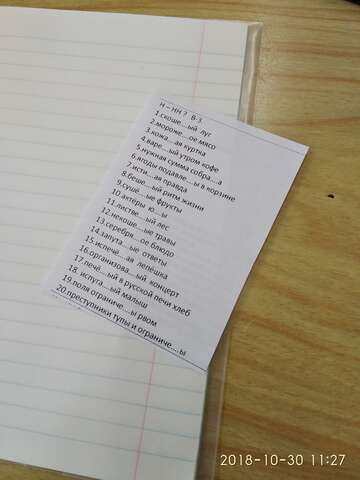 Н – НН ? В-3.
1.скоше...ый луг
2.мороже...ое мясо
3.кожа...ая куртка
4.варе...ый утром кофе
5.нужная сумма собра...а
6.ягоды подавле...ы в корзине
7.исти...ая правда
8.беше...ый ритм жизни
9.сушё...ые фрукты
10.актёры ю...ы
11.листве...ый лес
12.некоше...ые травы
13.серебря...ое блюдо
14.запута...ые ответы
15.испечё...ая лепёшка
16.организова...ый концерт
17.печё...ый в русской печи хлеб
18. испуга...ый малыш
19.поля ограниче...ы рвом
20.преступники тупы и ограниче...ы
2018-10-30 11:27